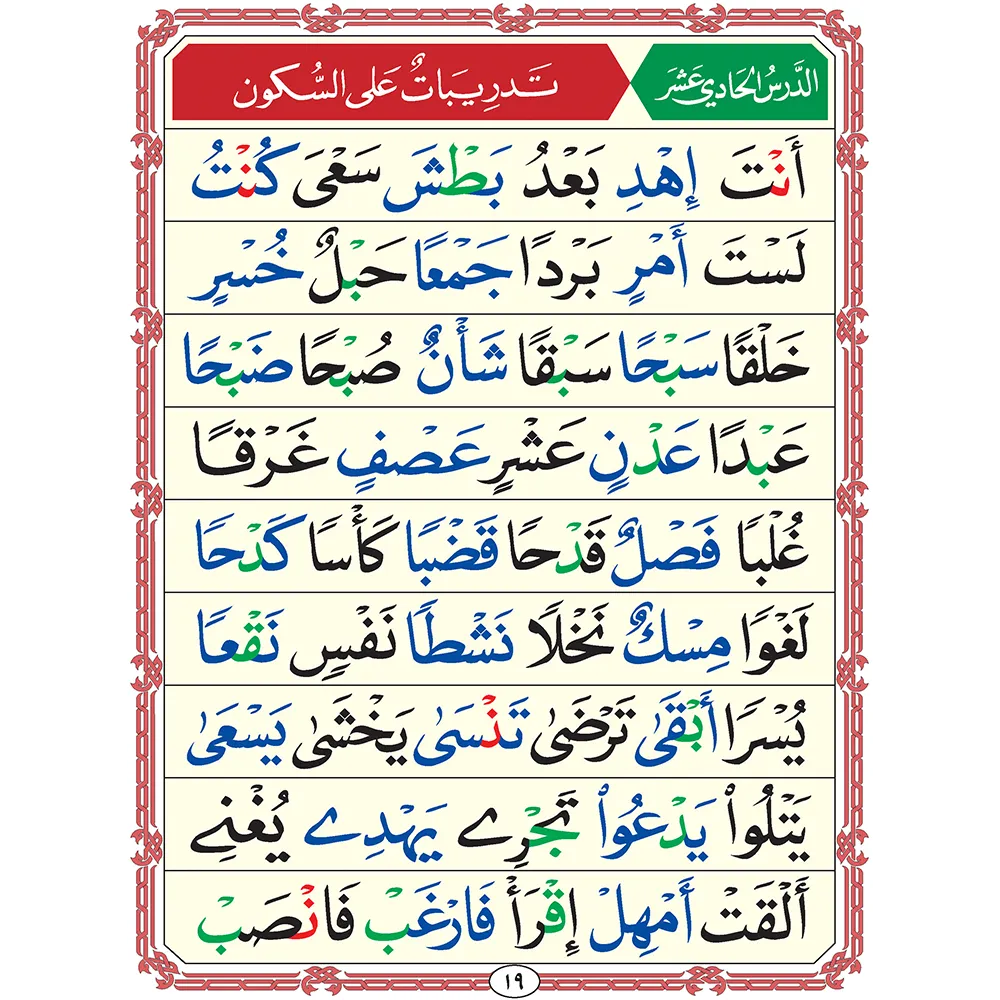 الدَّرْسُ الحَادِي عَشَرَ
تَدْرِيبَاتٌ عَلَى السُّكُونِ
أَنْتَ إِهْدِ بَعْدُ بَطْشَ سَعْىَ كُنْتُ
لَسْتَ أَمْرٍ بَرْدًا جَمْعًا حَبْلٌ خُسْرٍ
خَلْقًا سَبْحًا سَبْقًا شَأْنٌ صُبْحًا ضَبْحًا
عَبْدًا عَدْنٍ عَشْرٍ عَصْفٍ غَرْقًا
غُلْبًا فَصْلٌ قَدْحًا قَضْبًا كَأْسًا كَدْحًا
لَغْوًا مِسْكٌ نَخْلًا نَشْطًا نَفْسٍ نَقْعًا
يُسْرًا أَبْقَىٰ تَرْضَىٰ تَنْسَىٰ يَخْشَىٰ يَسْعَىٰ
يَتْلُواْ يَدْعُواْ تَجْرِے يَهْدِے يُغْنِے
أَلْقَتْ أَمْهِلْ إِقْرَأْ فَارْغَبْ فَانْصَبْ
١٩